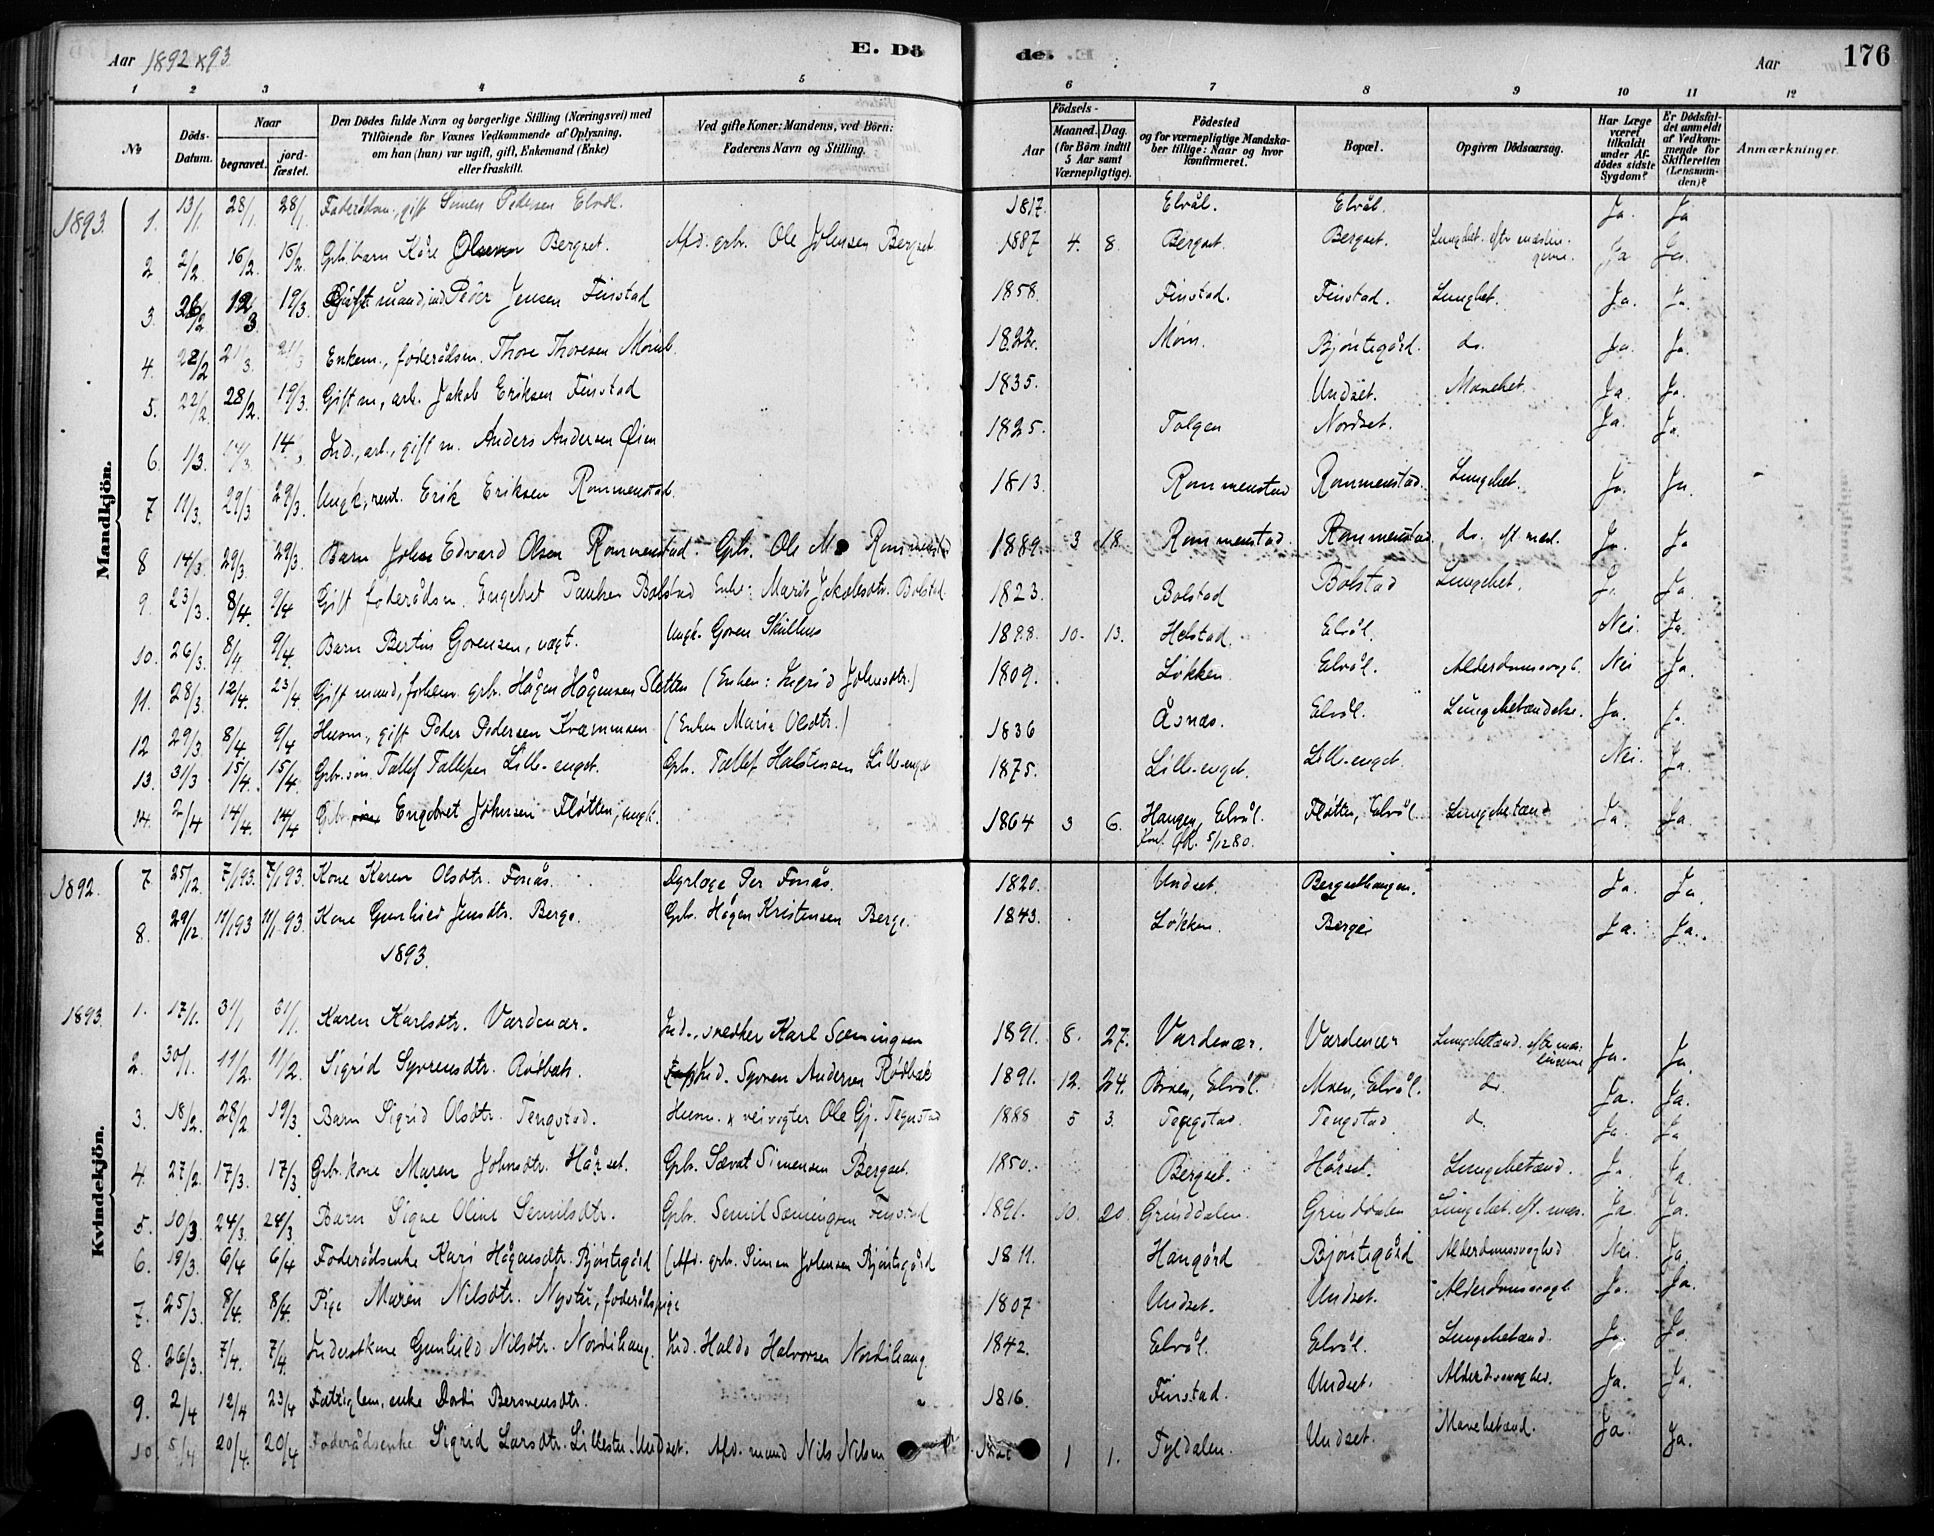 Aar 1892 & 93
E. Dö
de.
Aar
176
1 2 3 4 5 6 7 8 9 10 11 12
No
Döds-Datum.
Naar
begravet.
jord-fæstet.
Den Dödes fulde Navn og borgerlige Stilling (Næringsvei) med
Tilföiende for Voxnes Vedkommende af Oplysning,
om han (hun) var ugift, gift, Enkemand (Enke)
eller fraskilt.
Ved gifte Koner: Mandens, ved Börn:
Faderens Navn og Stilling.
Födsels-
Aar
Maaned. Dag.
(for Börn indtil
5 Aar samt
Værnepligtige).
Födested
og for værnepligtige Mandska-
ber tillige: Naar og hvor
konfirmeret.
Bopæl.
Opgiven Dödsaarsag.
Har Læge
været
tilkaldt
under Af-
dödes sidste
Sygdom?
Er Dödsfal-
det anmeldt
af Vedkom-
mende for
Skifteretten
(Lensman-
den)?
Anmærkninger.
Mandkjön.
1893. 1. 13/1 28/1. 28/1. Foderådsm., gift Simen Pedersen Elvål. 1817. Elvål. Elvål. Ja. Ja
2 2/2 16/2. 16/2. Grb. barn Kåre Olsen Bergset. Afd. grb. Ole Johnsen Bergset 1887 4. 8. Bergset. Bergset. Lungbet. eftr meslin- Ja Ja.
gerne.
3. 26/2 12/3 19/3. Gift mand, ind Peder Jensen Finstad 1858. Finstad. Finstad. Lungbet. Ja. Ja.
4. 22/2 21/3. 21/3 Enkem., foderådsm. Thore Thoresen 1822. Morn. Bjöntegård. do. Ja. Ja.
5. 22/2. 28/2. 19/3. Gift m, arb. Jakob Eriksen Finstad 1835. Undset. Mavebet. Ja Ja.
6. 1/3. 14/3 14/3 Ind., arb., gift m. Anders Andersen Öien 1825. Tolgen Nordset. Ja. Ja.
7 11/3. 29/3 29/3. Ungk., rent. Erik Eriksen Rommenstad. 1813. Rommenstad Rommenstad. Lungebet. Ja. Ja.
8 14/3. 29/3. 29/3. Barn John Edvard Olsen Rommenstad. Grb. Ole M. Rommenstad 1889. 3 18. Rommenstad. Rommenstad. do. eft mesl. Ja. Ja
9. 23/3. 8/4. 9/4 Gift foderådsm. Engebret Paulsen Bolstad Enke: Marit Jakobsdtr. Bolstad 1823. Bolstad Bolstad Lungebet. Ja. Ja.
10. 26/3. 8/4 9/4. Barn Bertin Gorensen, uægt. Ungk. Goren 1888. 10. 13. Helstad. Elvål. Nei. Ja.
11. 28/3. 12/4. 23/4. Gift mand, forhenv. grb. Hågen Hågensen Sletten (Enken: Ingrid Johnsdtr.) 1809. Lökken. Elvål. Alderdomssvagh. Nei Ja.
12 29/3 8/4 9/4 Husm., gift Peder Pedersen Kværnmoen (Enken Maria Olsdtr.) 1836 Åsnæs. Elvål. Lungebetændelse. Ja. Ja.
13. 31/3 15/4. 15/4. Grb.sön Tollef Tollefsen Lille-enget. Grb. Tollef Halstensen Lille-enget 1875. Lille-enget. Lille-enget. Nei. Ja.
14. 2/4 14/4. 14/4 Grb. Engebret Johnsen Flötten, ungk. 1864 3 6. Haugen, Elvål. Flötten, Elvål. Lungebetænd Ja Ja.
Konf. 5/12 80.
Kvindekjön.
1892. 7. 25/12. 7/1 93. 7/1 93. Kone Karen Olsdtr. Fonås. Dyrlæge Per Fonås. 1820. Undset. Bergsethaugen. Ja. Ja.
8. 29/12. 11/1 93 11/1 93. Kone Gunhild Jensdtr. Berge. Grb. Hågen Kristensen Berge. 1843. Lökken. Berge Ja. Ja.
1893.
1893. 1. 17/1. 31/1 31/1. Karen Karlsdtr. Vardenær. Ind., snedker Karl Sæmingsen 1891. 8. 27. Vardenær. Vardenær Lungebetænd. efter mæs- Ja. Ja.
lingerne
2. 30/1. 11/2. 11/2. Sigrid Syversdtr. Rödbæk. Ind. Syver Andersen Rödbæk 1891. 12. 24. Elvål. Moen, Elvål. do Ja. Ja.
3. 18/2. 28/2. 19/3. Barn Sigrid Olsdtr. Tengstad. Husm. & veivogter Ole Gj. Tegnstad 1888 5 3. Teggstad. Tengstad d. Ja. Ja
4. 27/2. 17/3. 17/3. Grb.kone Maren Johnsdtr. Hårset. Grb. Sævat Simensen Bergset. 1850. Bergset. Hårset. Lungebetænd. Ja. Ja.
5. 10/3 24/3. 24/3 Barn Signe Oline Semilsdtr. Grb. Semil Sæmingsen Finstad 1891. 10. 20. Grinddalen. Grinddalen Lungebet. eft. mæs. Ja. Ja.
6. 19/3. 6/4 6/4 Foderådsenke Kari Hågensdtr. Bjöntegård (Afd. grb. Simen Johnsen Bjöntegård 1811. Haugård Bjöntegård Alderdomssvaghed Nei. Ja.
7. 25/3 8/4. 8/4. Pige Maren Nilsdtr. Nystu, foderådspige 1807 Undset. Undset. Alderdomssvagh. Ja. Ja.
8. 26/3. 7/4. 7/4. Inderstkone Gunhild Nilsdtr. Nordihaug. Ind. Haldo Halvorsen Nordihaug 1842. Elvål. Elvål. Lungebetænd. Ja. Ja.
9. 2/4 12/4 23/4 Fattiglem, enke Dordi Bersvensdtr. 1816. Finstad. Undset. Alderdsvaghed. Ja. Ja.
10. 5/4 20/4. 20/4 Foderådsenke Sigrid Larsdtr. Lillestu-Undset. Afd. mand Nils Nilsen 1 1. Tyldalen. Undset. Mavebetænd. Ja. Ja.